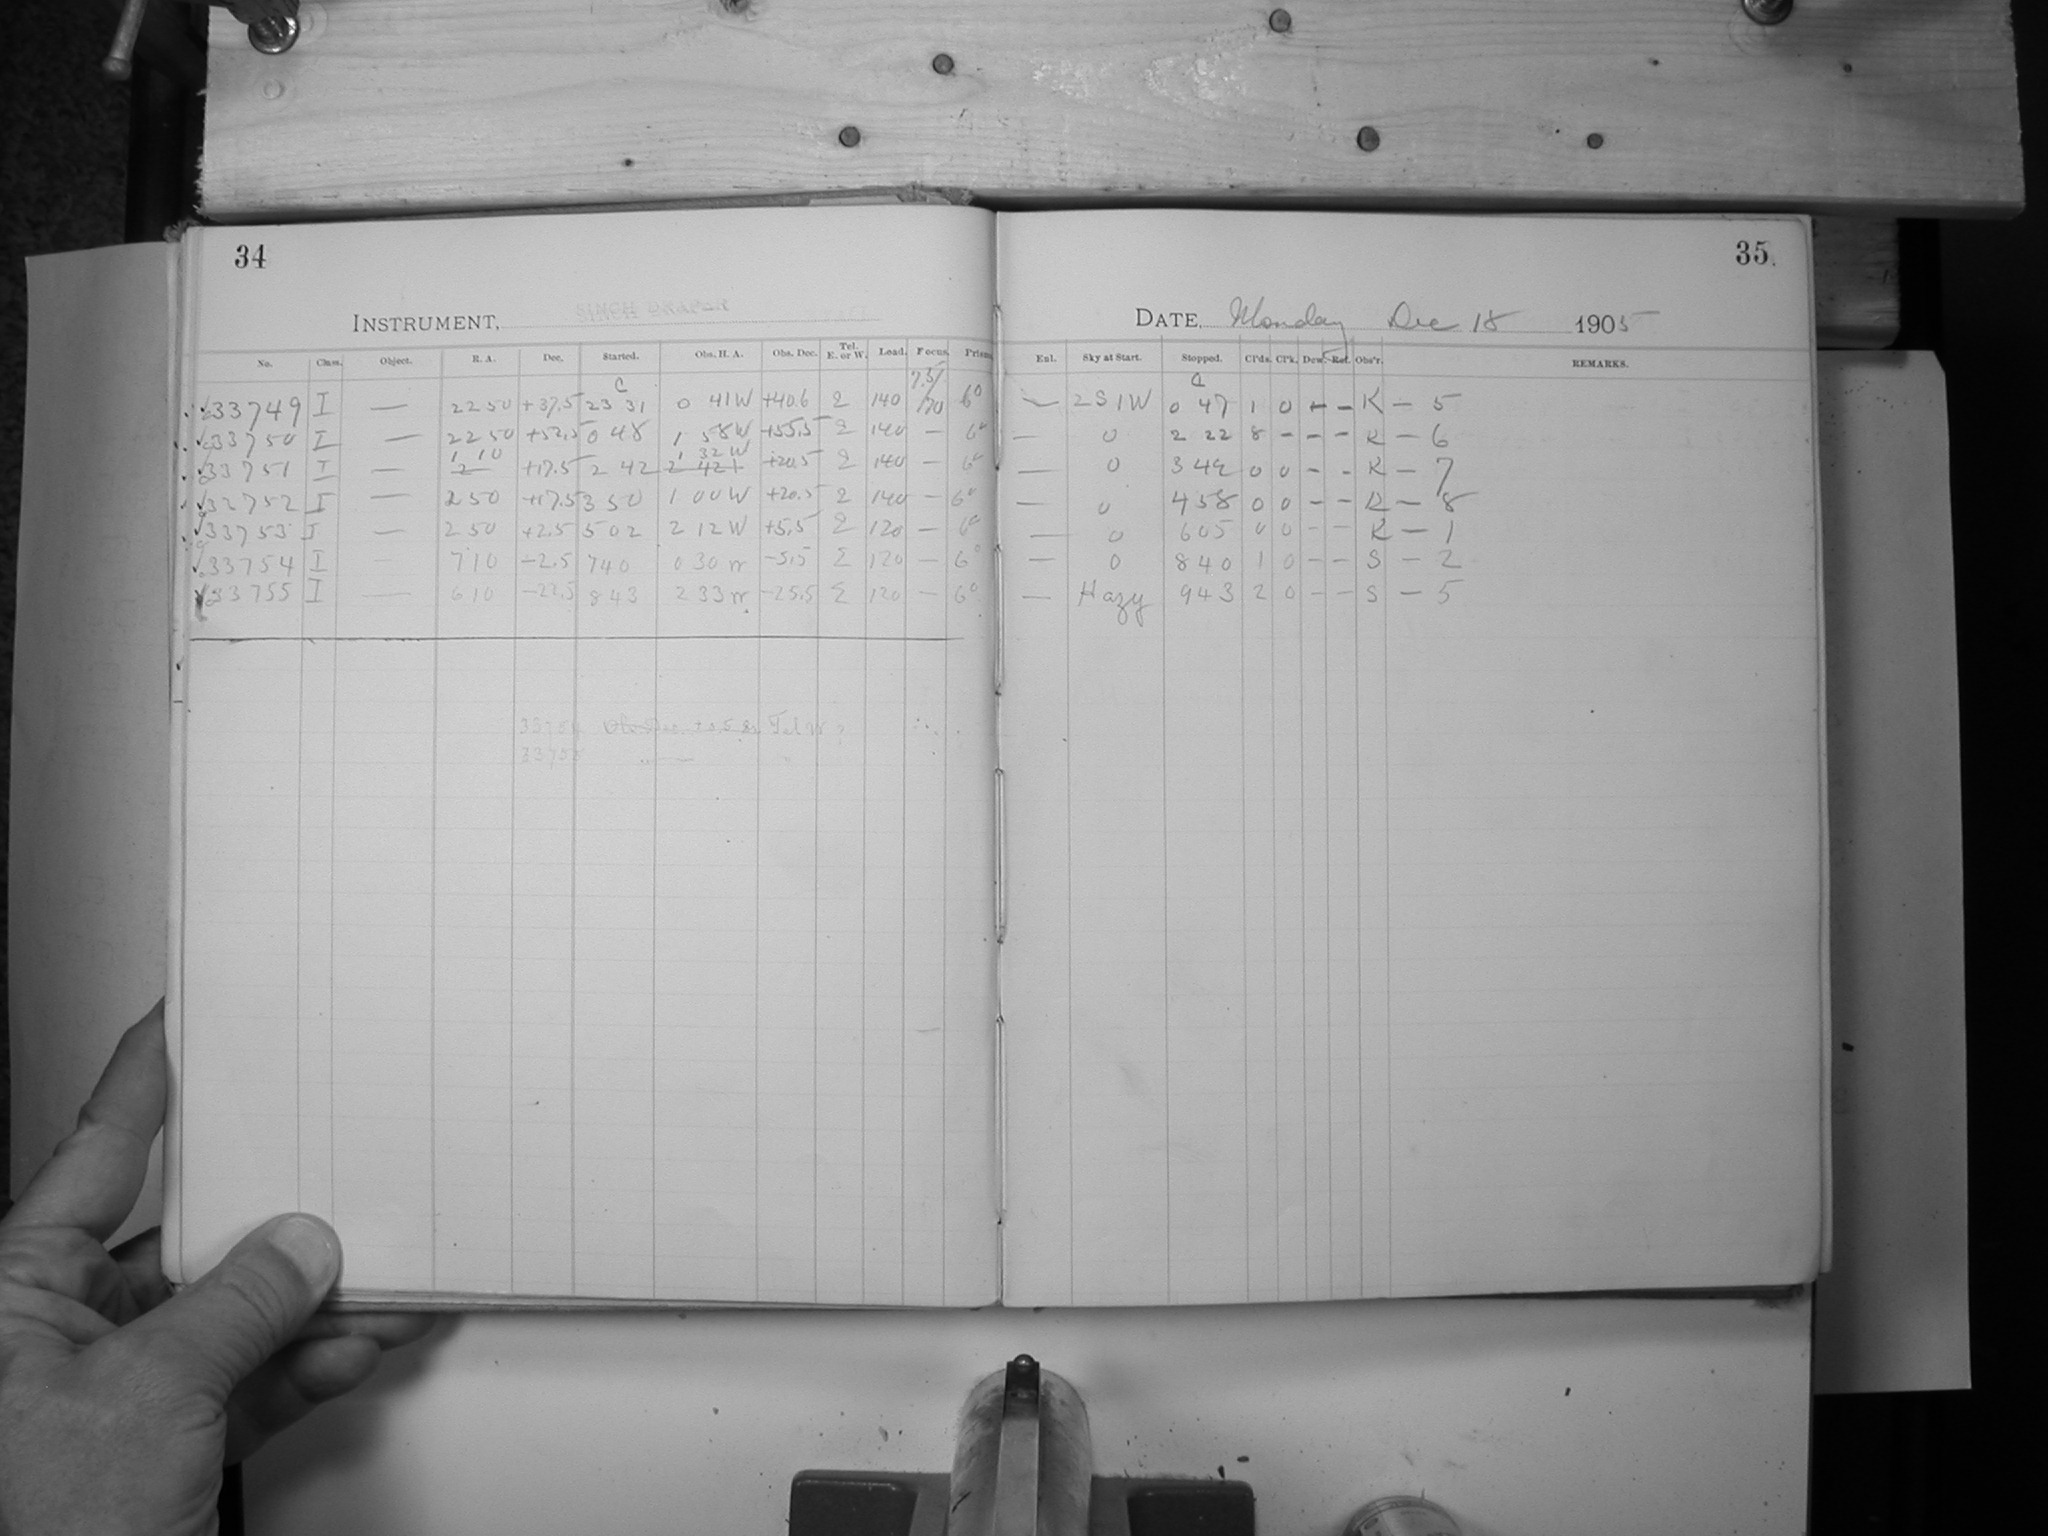 34
35.
INSTRUMENT, 8 INCH DRAPER
DATE, Monday Dec 18 1905
No. Class. Object. R. A. Dec. Started. Obs. H. A. Obs. Dec. Tel. E. or W. Load. Focus. Prism
Enl. Sky at Start. Stopped. Cl'ds. Cl'k. Dew. Ref. Obs'r. REMARKS.
33749 I — 22 50 +37.5 23 31 0 41 W +40.6 Σ 140 6°
— 2 S 1 W 0 47 1 0 – – K — 5
33750 I — 22 50 +52.5 0 48 1 58 W +55.5 Σ 140 — 6°
— 0 2 22 8 – – – K — 6
33751 I — 1 10 +17.5 2 42 1 32 W +20.5 Σ 140 — 6°
— 0 3 42 0 0 – – K — 7
33752 I — 2 50 +17.5 3 50 1 00 W +20.5 Σ 140 — 6°
— 0 4 58 0 0 – – K — 8
33753 I — 2 50 +2.5 5 02 2 12 W +5.5 Σ 120 — 6°
— 0 6 05 0 0 – – K — 1
33754 I — 7 10 –2.5 7 40 0 30 W –5.5 Σ 120 — 6°
— 0 8 40 1 0 – – S — 2
33755 I — 6 10 –22.5 8 43 2 33 W –25.5 Σ 120 — 6°
— Hazy 9 43 2 0 – – S — 5
33754
33755